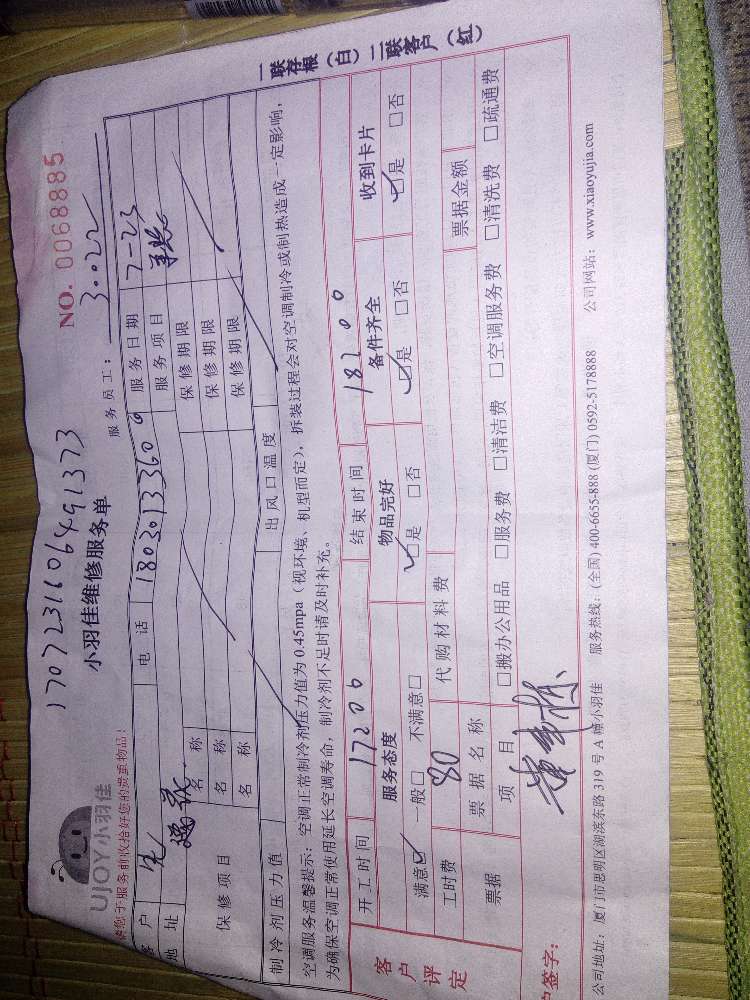 17072311064 91373
NO. 0068885
UJOY小羽佳
小羽佳维修服务单
服务员工： 30022
请您于服务前收拾好您的贵重物品！
客户 电话 18030133609 服务日期 7-23
地址 服务项目
保修项目 名称 保修期限
名称 保修期限
名称 保修期限
制冷剂压力值 出风口温度
空调服务温馨提示：空调正常制冷剂压力值为 0.45mpa（视环境、机型而定），拆装过程会对空调制冷或制热造成一定影响，
为确保空调正常使用延长空调寿命，制冷剂不足时请及时补充。
客户评定
开工时间 17:00 结束时间 18:00
服务态度 物品完好 备件齐全 收到卡片
满意☑ 一般□ 不满意□ ☑是 □否 ☑是 □否 ☑是 □否
工时费 80 代购材料费
票据 票据名称 票据金额
项目 □搬办公用品 □服务费 □清洁费 □空调服务费 □清洗费 □疏通费
户签字：
公司地址：厦门市思明区湖滨东路 319 号 A 幢小羽佳 服务热线：(全国) 400-6655-888 (厦门) 0592-5178888 公司网站：www.xiaoyujia.com
一联存根（白）二联客户（红）